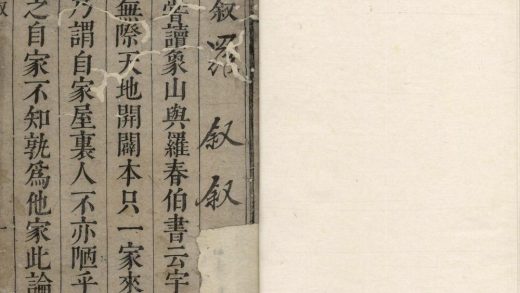 叙 羅 叙 叙
嘗讀象山與羅春伯書云宇
無際天地開闢本只一家來
乃謂自家屋裏人不亦陋乎
之自家不知孰爲他家此論
叙